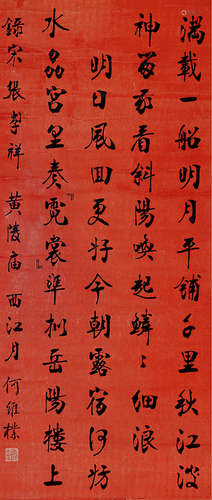 滿載一船明月平舖千里秋江波
神留我看斜陽喚起鱗〻細浪
明日風回更好今朝露宿何妨
水晶宮里奏『霓裳』準擬岳陽樓上
錄宋張孝祥黃陵廟西江月何維樸